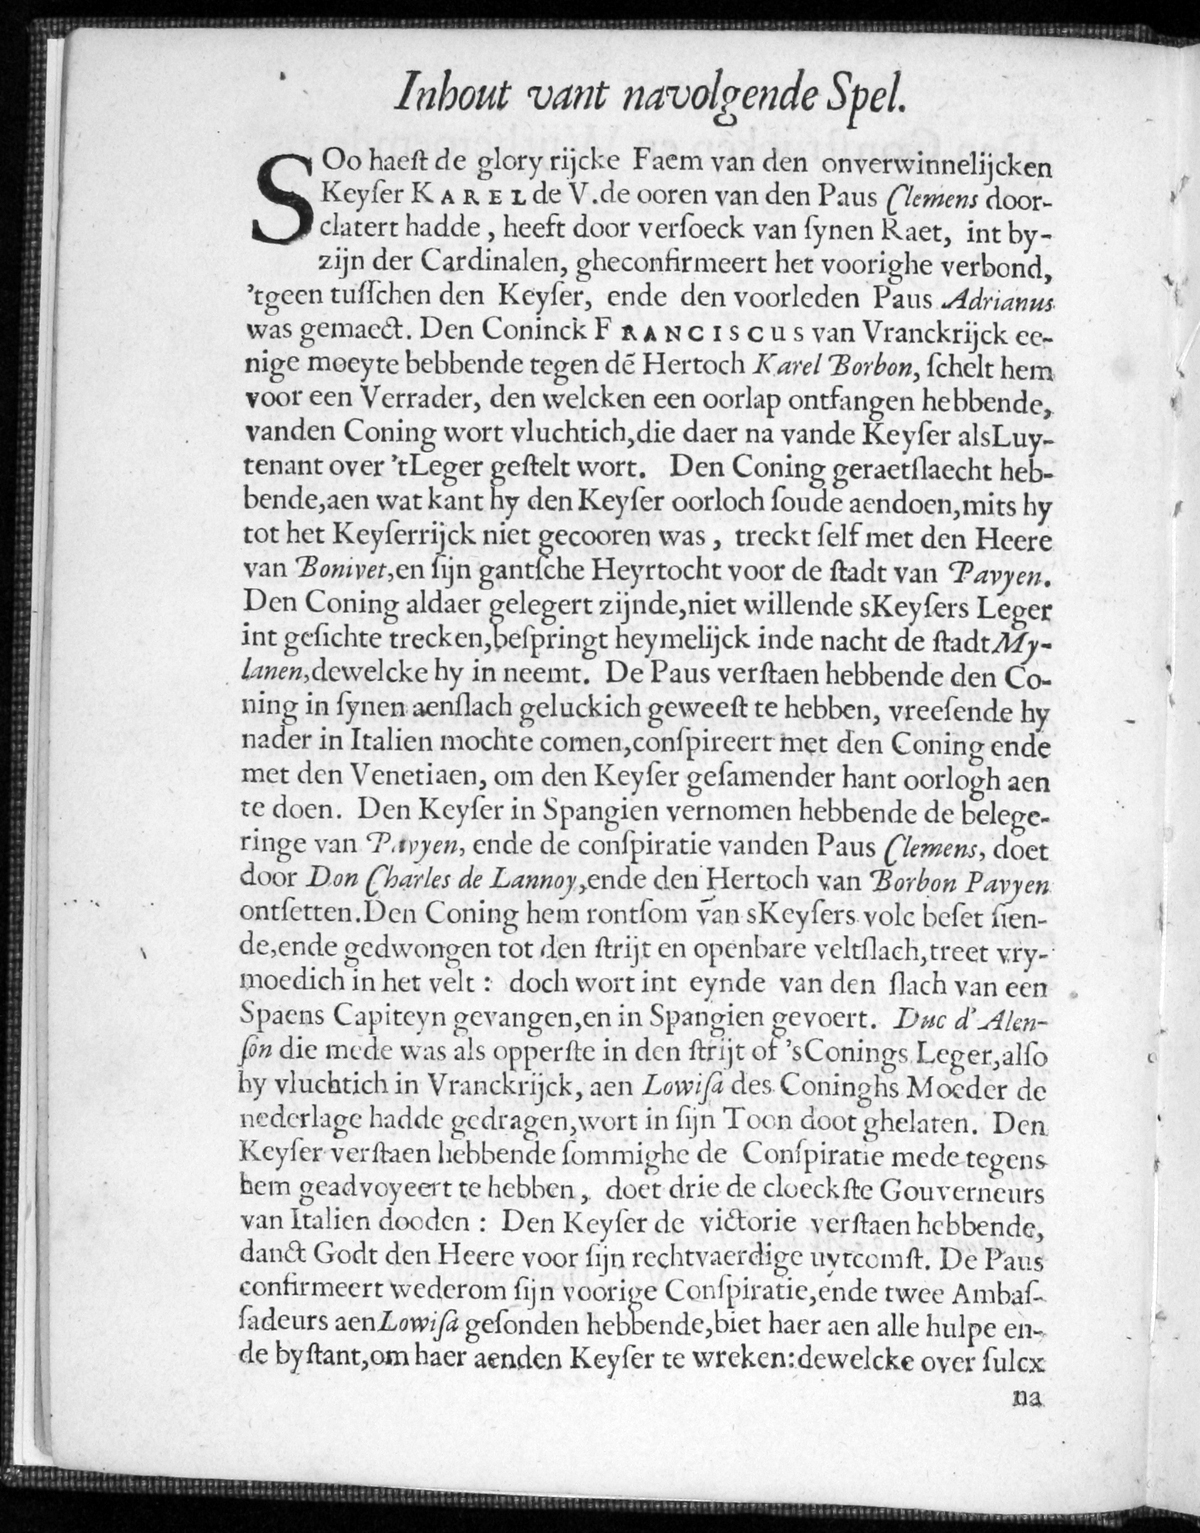 Inhout vant navolgende Spel.
SOo haeſt de glory rijcke Faem van den onverwinnelijcken
Keyſer KAREL de V. de ooren van den Paus Clemens door-
clatert hadde, heeft door verſoeck van ſynen Raet, int by-
zijn der Cardinalen, gheconfirmeert het voorighe verbond,
'tgeen tuſſchen den Keyſer, ende den voorleden Paus Adrianus
was gemaect. Den Coninck FRANCISCUS van Vranckrijck ee-
nige moeyte bebbende tegen dē Hertoch Karel Borbon, ſchelt hem
voor een Verrader, den welcken een oorlap ontfangen hebbende,
vanden Coning wort vluchtich,die daer na vande Keyſer alsLuy-
tenant over 'tLeger geſtelt wort. Den Coning geraetſlaecht heb-
bende,aen wat kant hy den Keyſer oorloch ſoude aendoen,mits hy
tot het Keyſerrijck niet gecooren was, treckt ſelf met den Heere
van Bonivet,en ſijn gantſche Heyrtocht voor de ſtadt van Pavyen.
Den Coning aldaer gelegert zijnde,niet willende sKeyſers Leger
int geſichte trecken,beſpringt heymelijck inde nacht de ſtadt My-
lanen,dewelcke hy in neemt. De Paus verſtaen hebbende den Co-
ning in ſynen aenſlach geluckich geweeſt te hebben, vreeſende hy
nader in Italien mochte comen,conſpireert met den Coning ende
met den Venetiaen, om den Keyſer geſamender hant oorlogh aen
te doen. Den Keyſer in Spangien vernomen hebbende de belege-
ringe van Pavyen, ende de conſpiratie vanden Paus Clemens, doet
door Don Charles de Lannoy,ende den Hertoch van Borbon Pavyen
ontſetten.Den Coning hem rontſom van sKeyſers volc beſet ſien-
de,ende gedwongen tot den ſtrijt en openbare veltſlach,treet vry-
moedich in het velt: doch wort int eynde van den ſlach van een
Spaens Capiteyn gevangen,en in Spangien gevoert. Duc d'Alen-
ſon die mede was als opperſte in den ſtrijt of 'sConings Leger,alſo
hy vluchtich in Vranckrijck, aen Lowiſa des Coninghs Moeder de
nederlage hadde gedragen,wort in ſijn Toon doot ghelaten. Den
Keyſer verſtaen hebbende ſommighe de Conſpiratie mede tegens
hem geadvoyeert te hebben, doet drie de cloeckſte Gouverneurs
van Italien dooden: Den Keyſer de victorie verſtaen hebbende,
danct Godt den Heere voor ſijn rechtvaerdige uytcomſt. De Paus
confirmeert wederom ſijn voorige Conſpiratie,ende twee Ambaſ-
ſadeurs aenLowiſa geſonden hebbende,biet haer aen alle hulpe en-
de byſtant,om haer aenden Keyſer te wreken:dewelcke over ſulcx
na